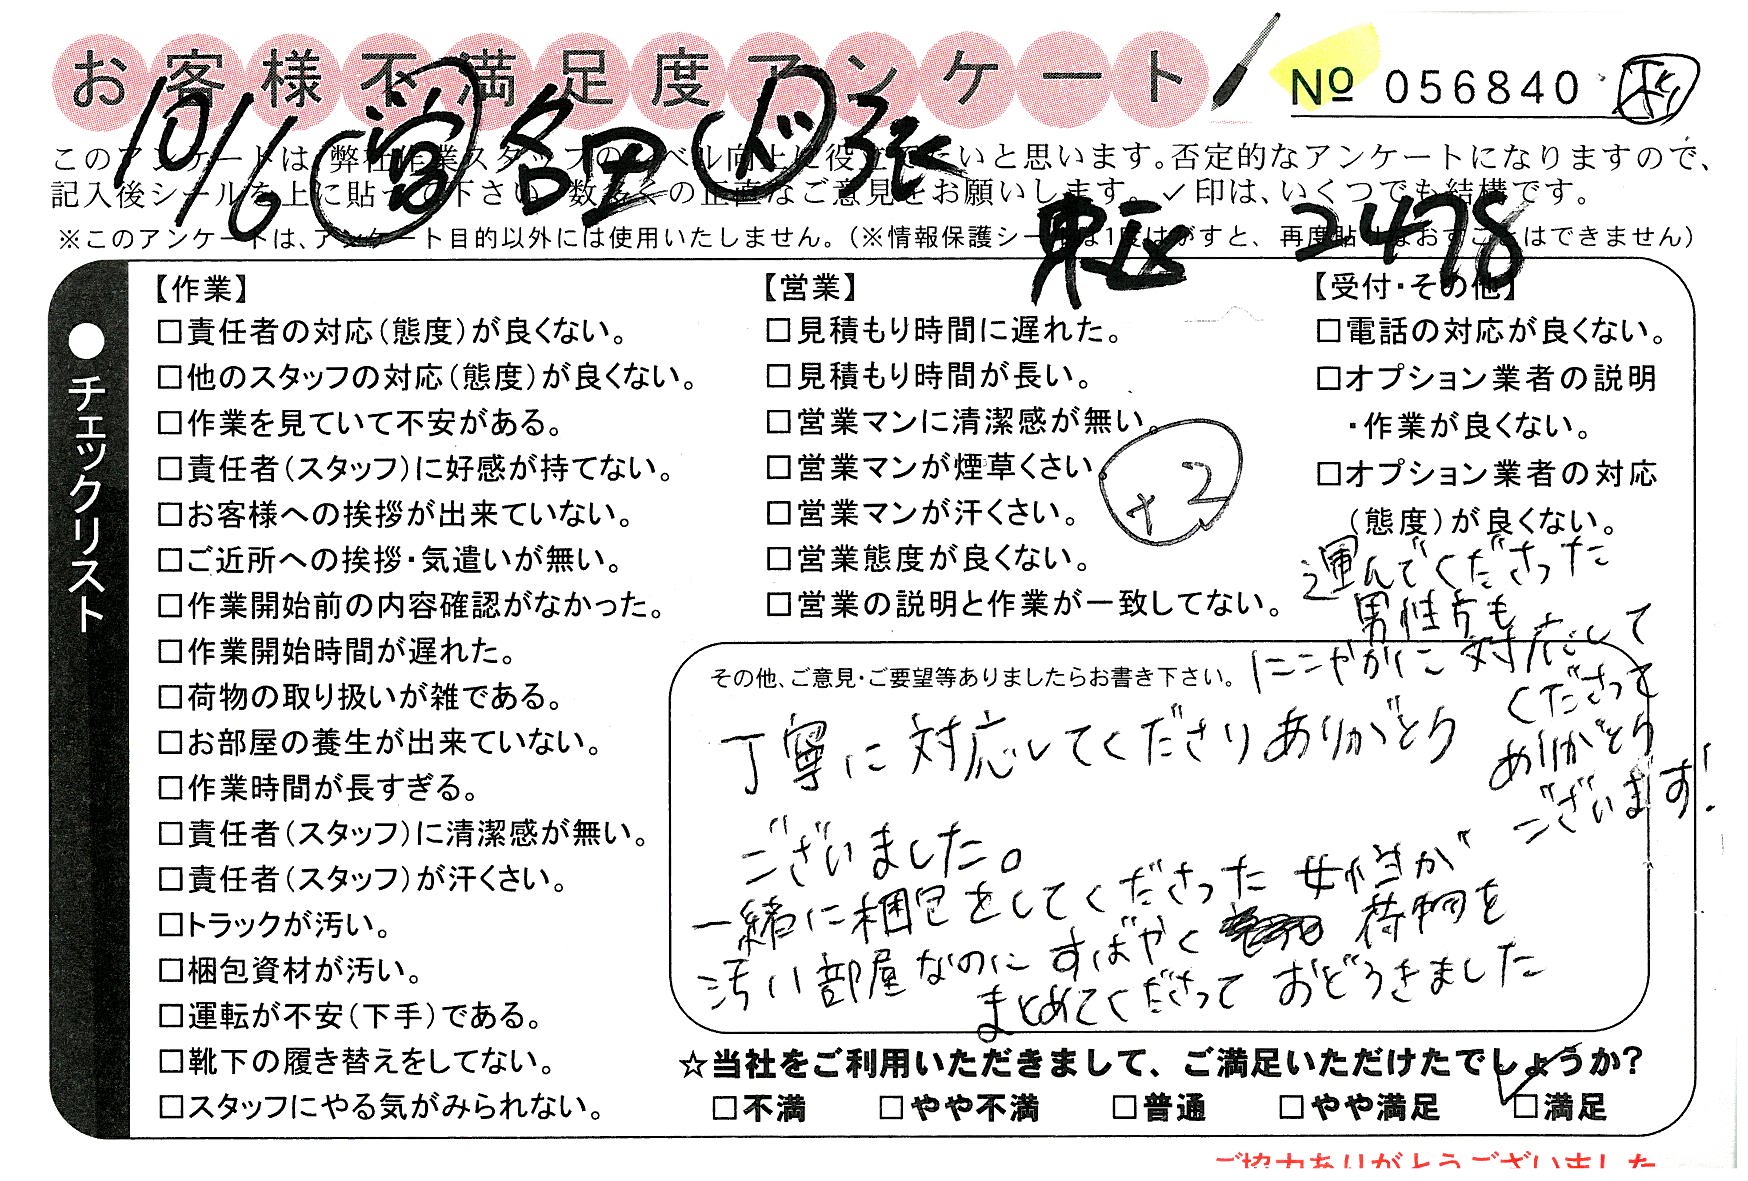 お客様不満足度アンケート
№ 056840
10/6 営 名田 ド 張
このアンケートは、弊社作業スタッフのレベル向上に役立てたいと思います。否定的なアンケートになりますので、
記入後シールを上に貼って下さい。数多くの正直なご意見をお願いします。✓印は、いくつでも結構です。
東区 2478
※このアンケートは、アンケート目的以外には使用いたしません。(※情報保護シールは1度はがすと、再度貼りなおすことはできません)
●チェックリスト
【作業】
□責任者の対応(態度)が良くない。
□他のスタッフの対応(態度)が良くない。
□作業を見ていて不安がある。
□責任者(スタッフ)に好感が持てない。
□お客様への挨拶が出来ていない。
□ご近所への挨拶・気遣いが無い。
□作業開始前の内容確認がなかった。
□作業開始時間が遅れた。
□荷物の取り扱いが雑である。
□お部屋の養生が出来ていない。
□作業時間が長すぎる。
□責任者(スタッフ)に清潔感が無い。
□責任者(スタッフ)が汗くさい。
□トラックが汚い。
□梱包資材が汚い。
□運転が不安(下手)である。
□靴下の履き替えをしてない。
□スタッフにやる気がみられない。
【営業】
□見積もり時間に遅れた。
□見積もり時間が長い。
□営業マンに清潔感が無い。
□営業マンが煙草くさい。
□営業マンが汗くさい。
□営業態度が良くない。
□営業の説明と作業が一致してない。
+2
【受付・その他】
□電話の対応が良くない。
□オプション業者の説明
・作業が良くない。
□オプション業者の対応
(態度)が良くない。
その他、ご意見・ご要望等ありましたらお書き下さい。
丁寧に対応してくださりありがとう
ございました。
一緒に梱包をしてくださった女性が
汚い部屋なのにすばやく 荷物を
まとめてくださっておどろきました
運んでくださった
男性方も
にこやかに対応して
くださって
ありがとう
ございます!
☆当社をご利用いただきまして、ご満足いただけたでしょうか?
□不満 □やや不満 □普通 □やや満足 ☑満足
ご協力ありがとうございました